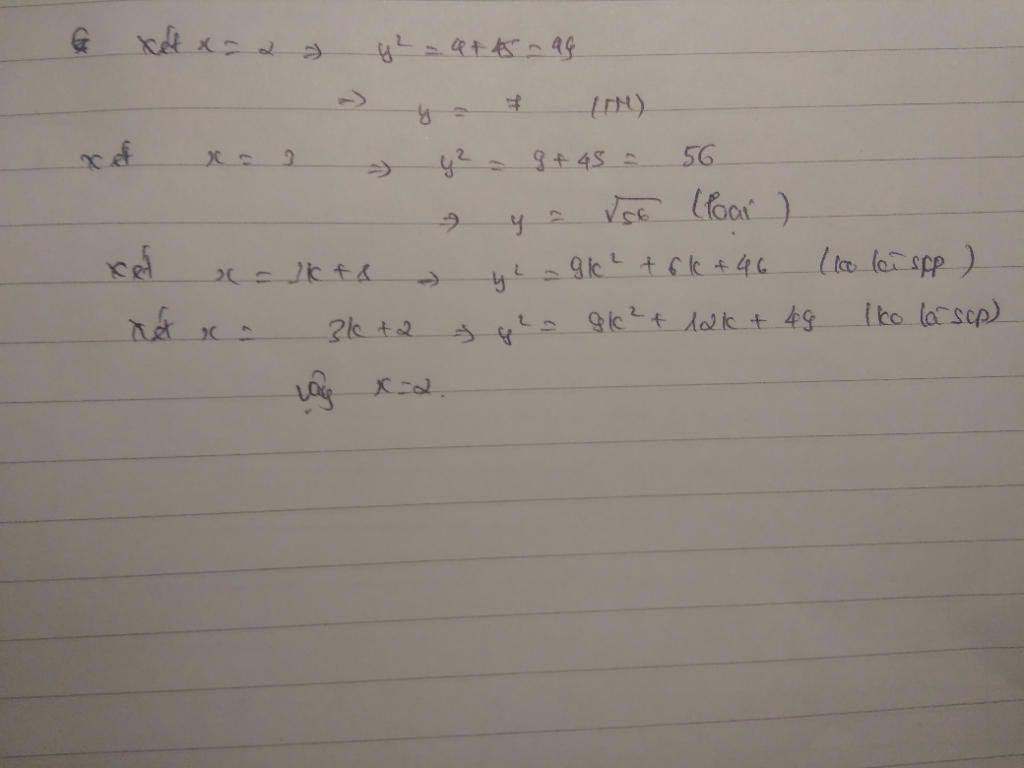 xét x = 2 ⇒ y² = 4 + 45 = 49
⇒ y = 7 (TM)
xét x = 3 ⇒ y² = 9 + 45 = 56
⇒ y = √56 (loại)
xét x = 3k + 1 ⇒ y² = 9k² + 6k + 46 (ko là spp)
xét x = 3k + 2 ⇒ y² = 9k² + 12k + 49 (ko là scp)
vậy x = 2.